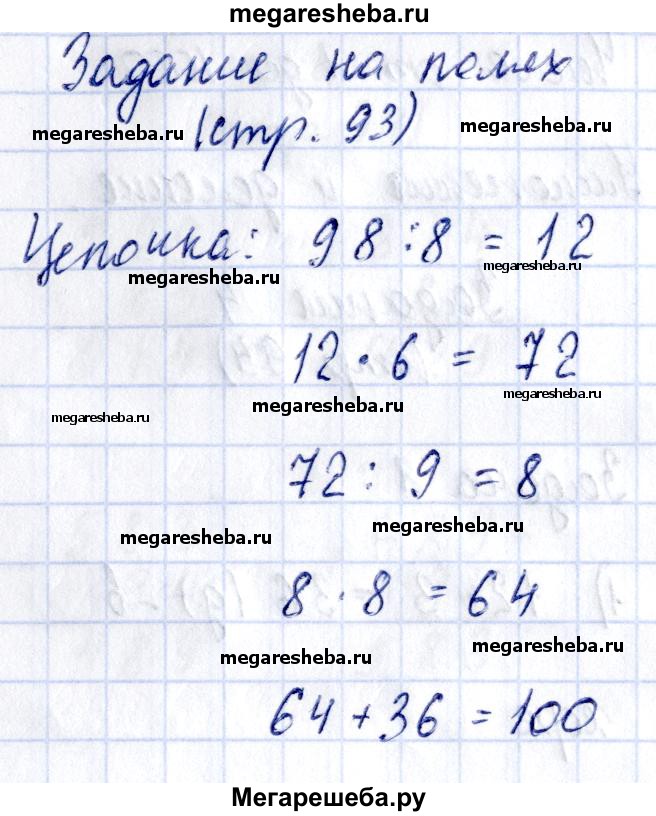 megaresheba.ru
Задание на полях
megaresheba.ru (стр. 93) megaresheba.ru
Цепочка: 98 : 8 = 12
megaresheba.ru megaresheba.ru
12 · 6 = 72
megaresheba.ru megaresheba.ru megaresheba.ru
72 : 9 = 8
megaresheba.ru megaresheba.ru
8 · 8 = 64
megaresheba.ru megaresheba.ru
64 + 36 = 100
Мегарешеба.ру